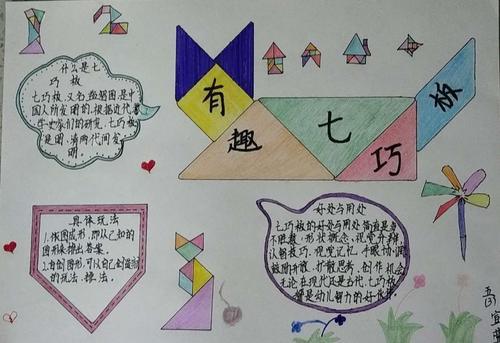 有趣七巧板
什么是七
巧板
七巧板,又名益智图是中
国人所发明的,根据近代数
学史家们的研究,七巧板
是明、清两代间发
明。
具体玩法
1.依图成形,即从已知的
图形来排出答案。
2.自创图形,可以自己创造新
的玩法、排法。
好处与用处
七巧板的好处与用处简直是多
不胜数,形状概念、视觉分辨、
认智技巧、视觉记忆、手眼协调
鼓励开放、扩散思考、创作机会
无论在现代还是古代,七巧板
都是幼儿智力的好伙伴
宜